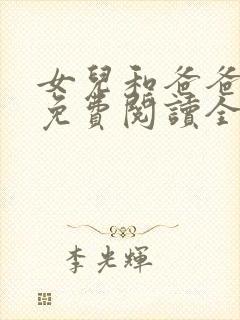 女兒和爸爸
免費閱讀全
李光輝